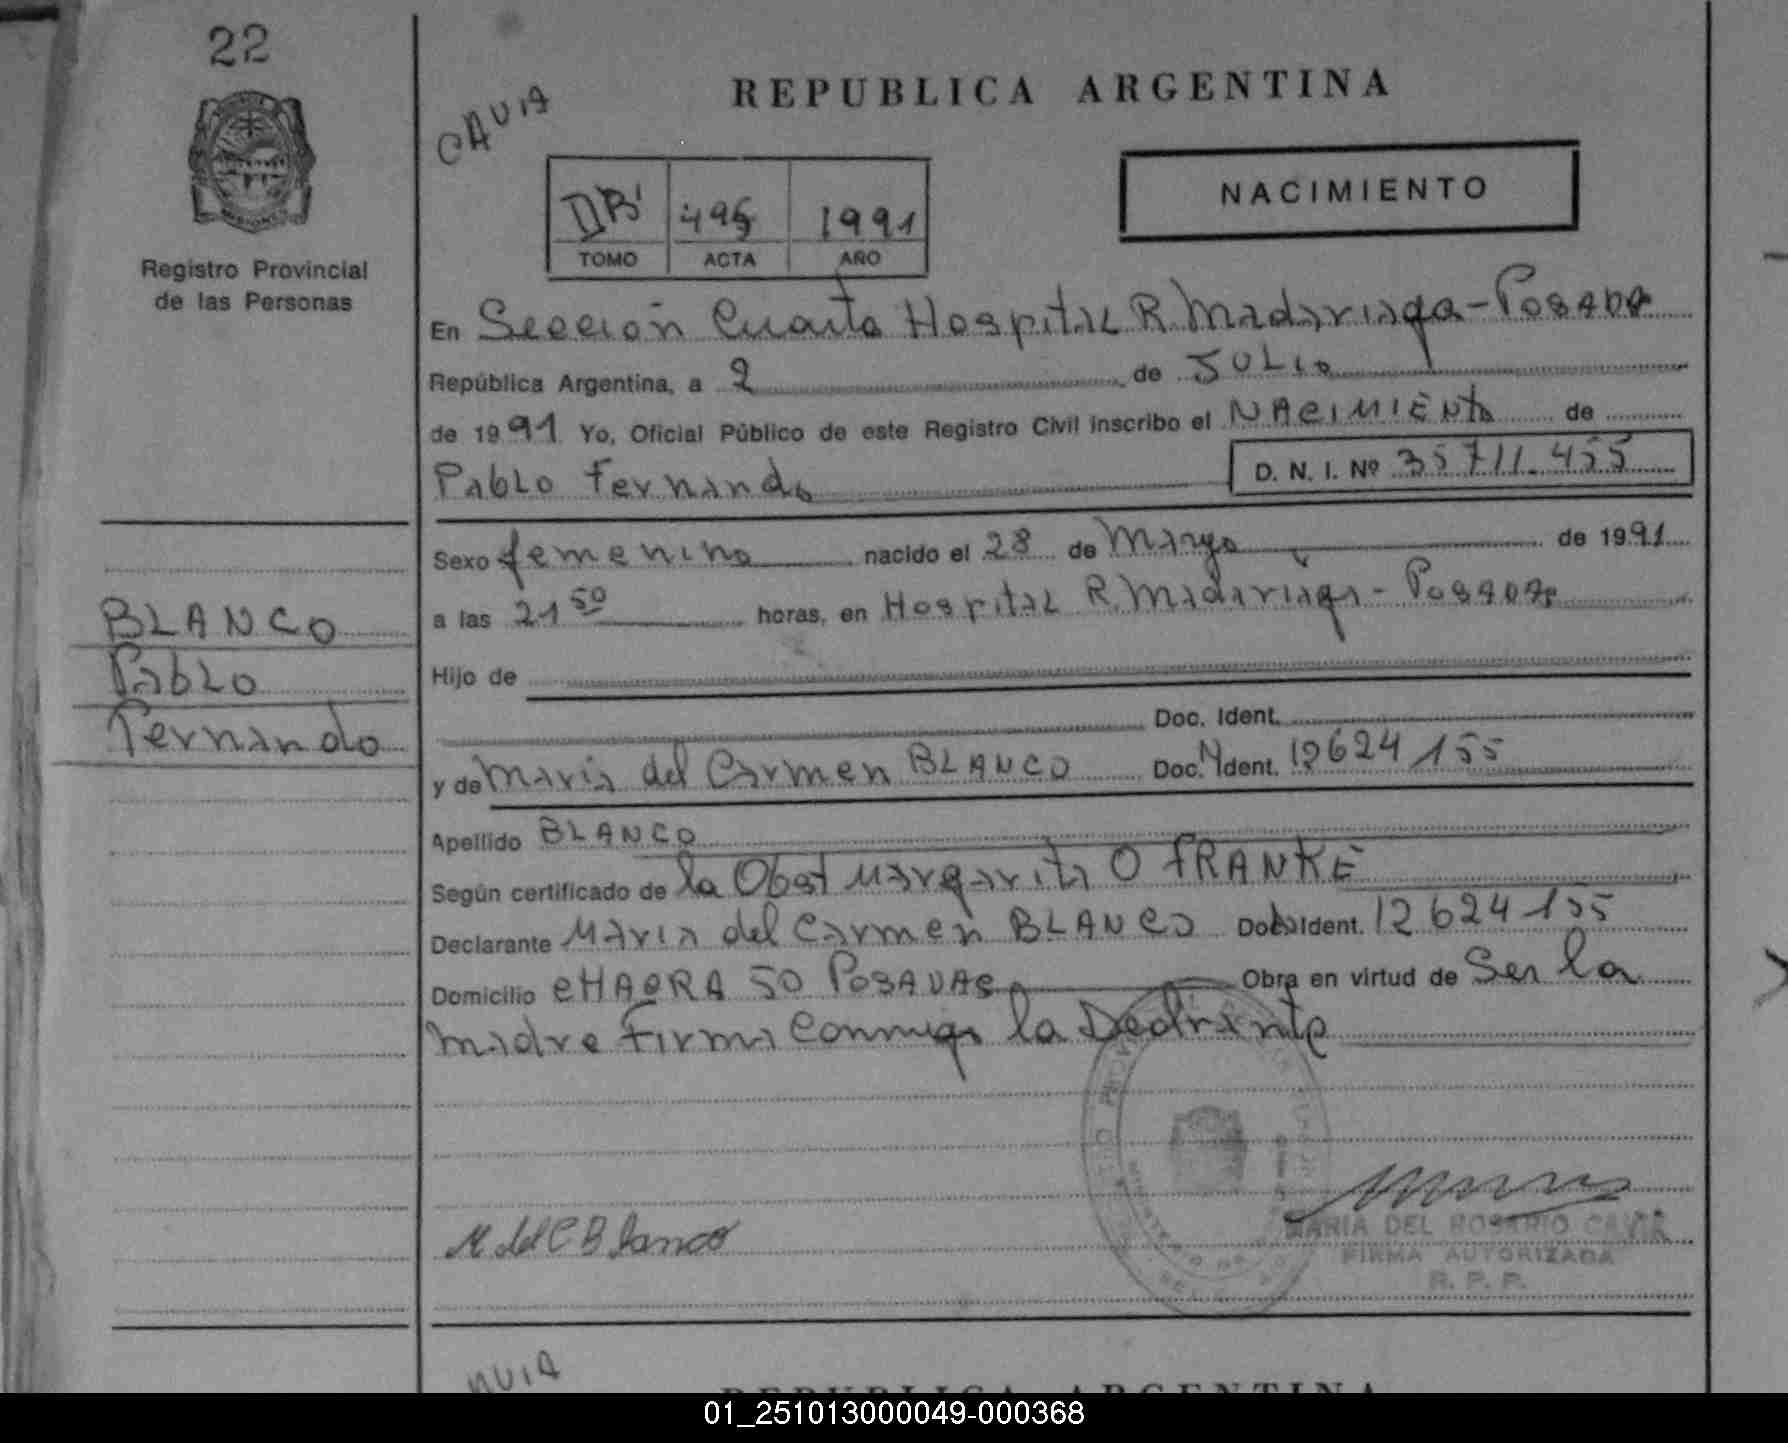 22
CAVIA
REPUBLICA ARGENTINA
NACIMIENTO
Registro Provincial
de las Personas
495 1991
TOMO ACTA AÑO
En Sección Cuarta Hospital R. Madariaga - Posadas
República Argentina, a 2 de JULIO
de 1991 Yo, Oficial Público de este Registro Civil inscribo el NACIMIENTO de
Pablo Fernando D. N. I. Nº 35711.455
Sexo femenino nacido el 28 de Mayo de 1991
a las 21 50 horas, en Hospital R. Madariaga - Posadas
BLANCO
Pablo
Fernando
Hijo de
Doc. Ident.
y de Maria del Carmen BLANCO Doc. Ident. 12624155
Apellido BLANCO
Según certificado de la Obst Margarita O FRANKE
Declarante Maria del Carmen BLANCO Ident. 12624155
Domicilio CHACRA 50 POSADAS Obra en virtud de Ser la
madre Firma Conmigo la Declrante
M del C Blanco
MARIA DEL ROSARIO CAVIA
FIRMA AUTORIZADA
R. P. P.
REPUBLICA ARGENTINA
01_251013000049-000368